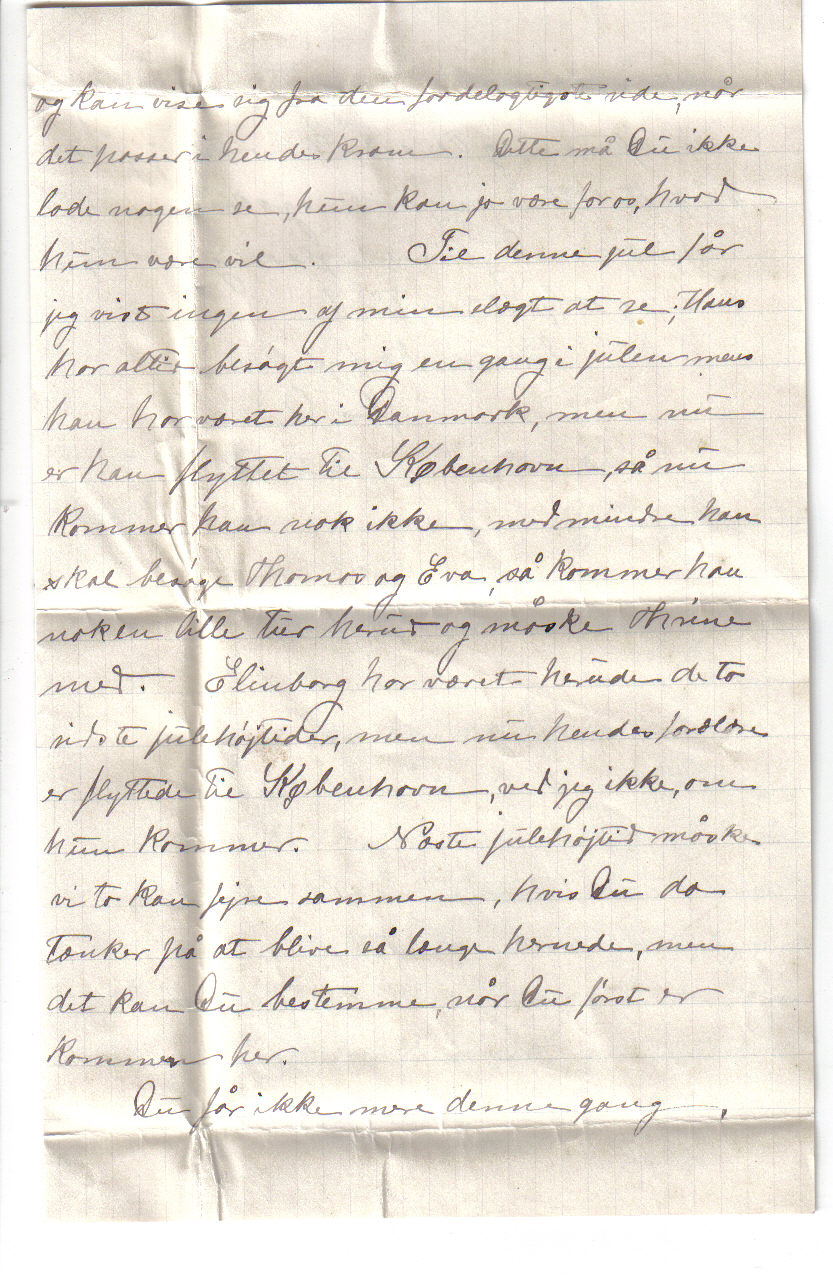 og kan vise sig fra den fordelagtigste side, når
det passer i hendes kram. Dette må Du ikke
lade nogen se, hun kan jo være for os, hvad
hun være vil. Til denne jul får
jeg vist ingen af min slægt at se; Hans
har altid besøgt mig en gang i julen mens
han har været her i Danmark, men nu
er han flyttet til København, så nu
kommer han nok ikke, med mindre han
skal besøge Thomas og Eva, så kommer han
nok en lille tur herud og måske Thrine
med. Elinborg har været herude de to
sidste julehøjtider, men nu hendes forældre
er flyttede til København, ved jeg ikke, om
hun kommer. Næste julehøjtid måske
vi to kan fejre sammen, hvis Du da
tænker på at blive så længe hernede, men
det kan Du bestemme, når Du først er
kommen her.
Du får ikke mere denne gang,